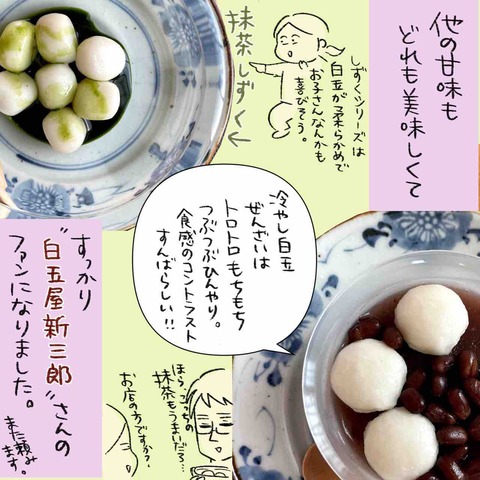 他の甘味も
どれも美味しくて
しずくシリーズは
白玉が柔らかめで
お子さんなんかも
喜びそう。
抹茶しずく←
冷やし白玉
ぜんざいは
トロトロもちもち
つぶつぶひんやり。
食感のコントラスト
すんばらしい!!
すっかり
"白玉屋新三郎"さんの
ファンになりました。
また頼み
ます。
ほら、こっちの
抹茶もうまいだろ…
お店の方ですか?